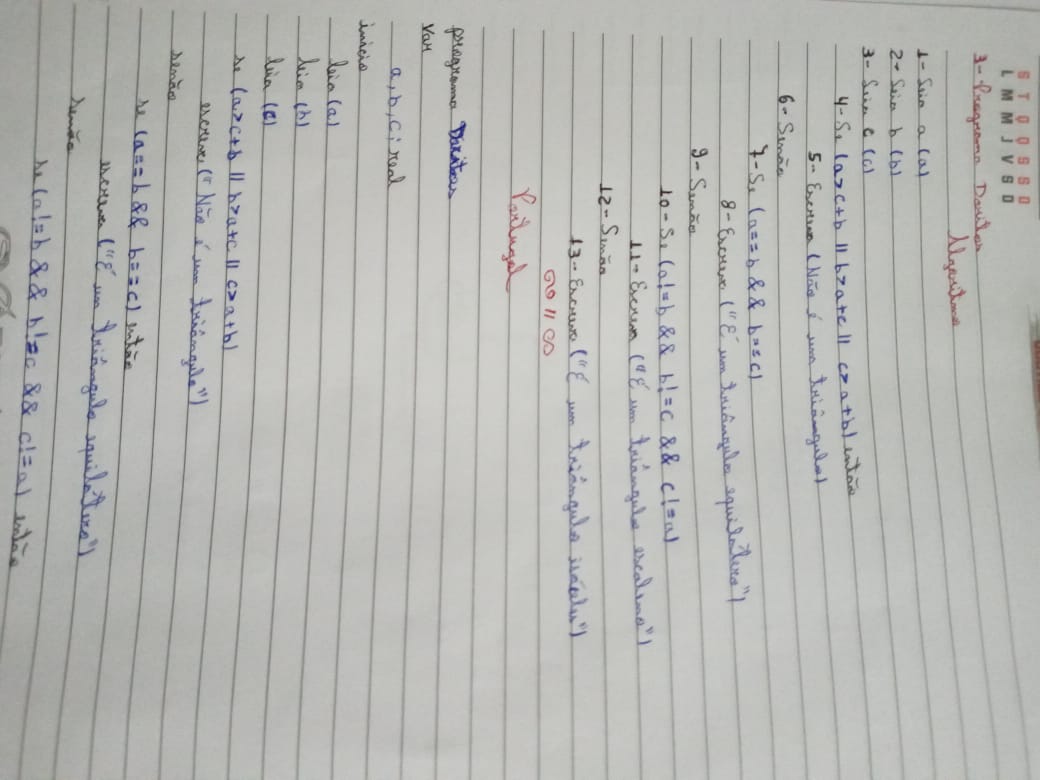 S T Q Q S S D
L M M J V S D
3- Programa Davitas
Algoritmo
1- Leia a (a)
2- Leia b (b)
3- Leia c (c)
4- Se (a>c+b || b>a+c || c>a+b) então
5- Escreva (Não é um triângulo)
6- Senão
7- Se (a==b && b==c)
8- Escreva ("É um triângulo equilátero")
9- Senão
10- Se (a!=b && b!=c && c!=a)
11- Escreva ("É um triângulo escaleno")
12- Senão
13- Escreva ("É um triângulo isóceles")
Portugol
programa
var
a, b, c: real
inicio
leia (a)
leia (b)
leia (c)
se (a>c+b || b>a+c || c>a+b)
escreva ("Não é um triângulo")
senão
se (a==b && b==c) então
escreva ("É um triângulo equilátero")
senão
se (a!=b && b!=c && c!=a) então